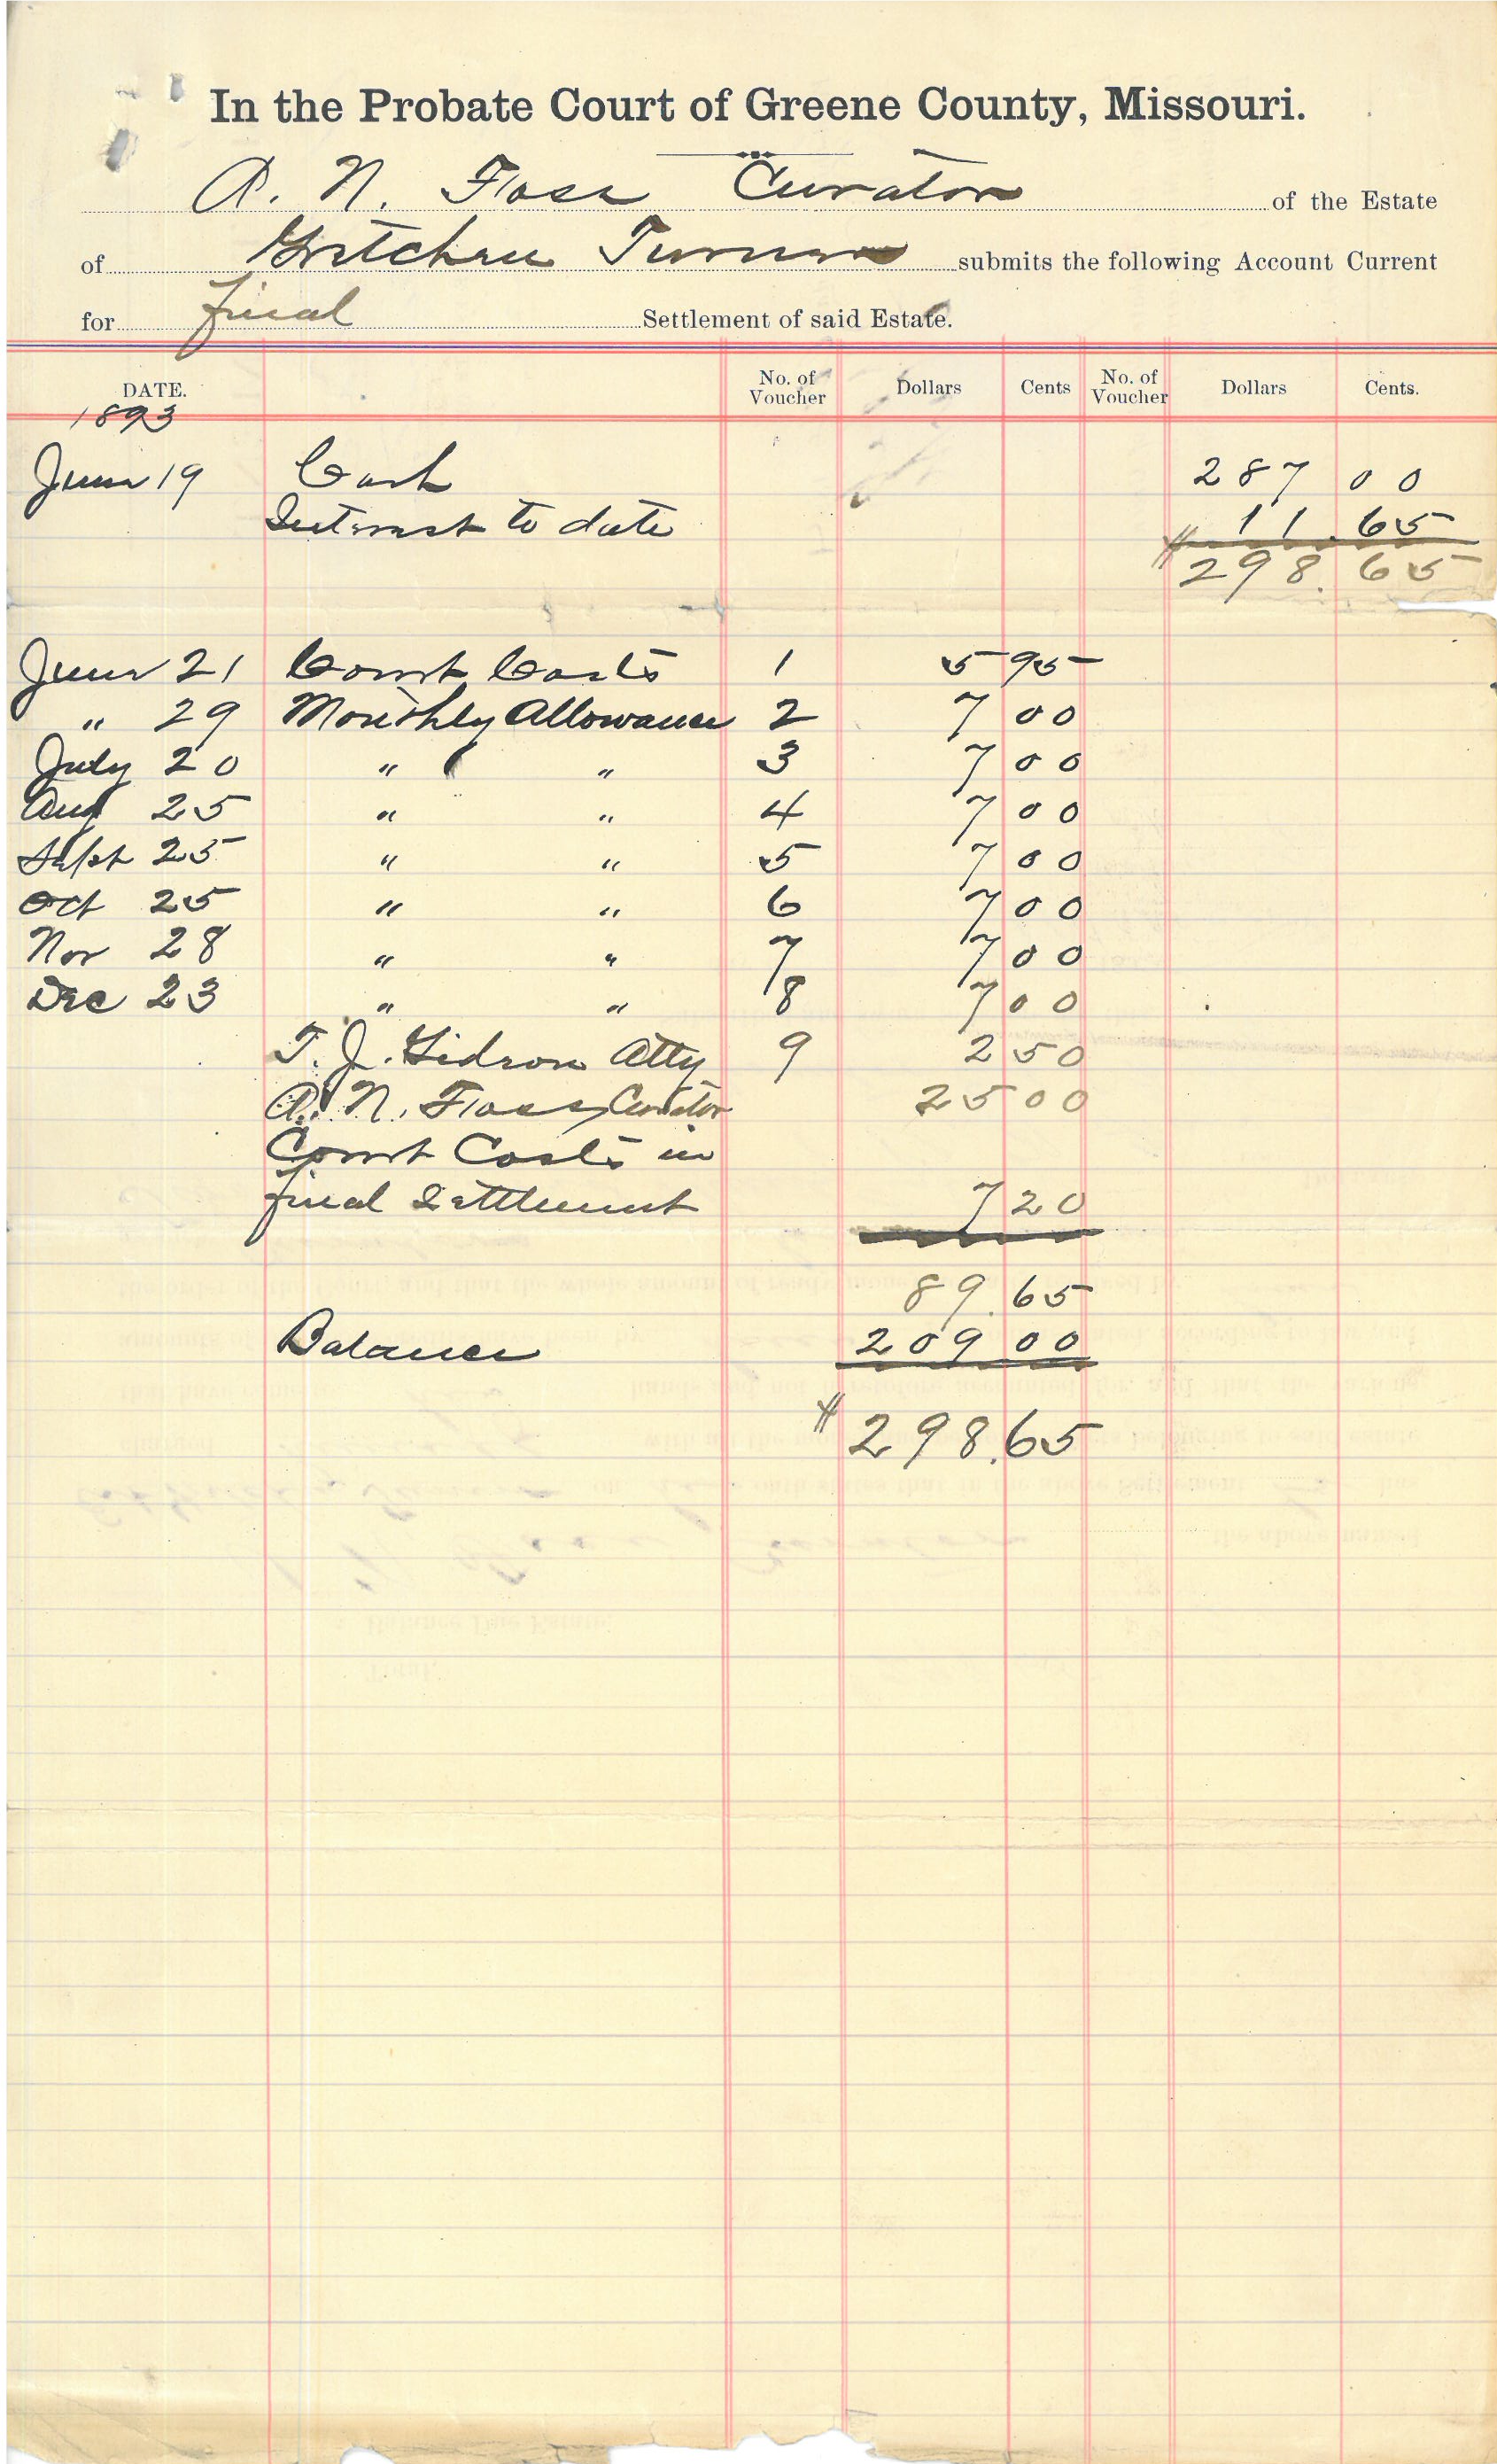 In the Probate Court of Greene County, Missouri.
A. N. Foss Curator of the Estate
of Gretchen Turner submits the following Account Current
for final Settlement of said Estate.
DATE. No. of Voucher Dollars Cents No. of Voucher Dollars Cents.
1893
June 19 Cash 287 00
Interest to date 11.65
$298.65
June 21 Court Costs 1 5 95
" 29 Monthly Allowance 2 7 00
July 20 " " 3 7 00
Aug 25 " " 4 7 00
Sept 25 " " 5 7 00
Oct 25 " " 6 7 00
Nov 28 " " 7 7 00
Dec 23 " " 8 7 00
T. J. Gideon Atty 9 2 50
A. N. Foss, Curator 25 00
Court Costs in
final Settlement 7 20
89.65
Balance 209 00
$298.65